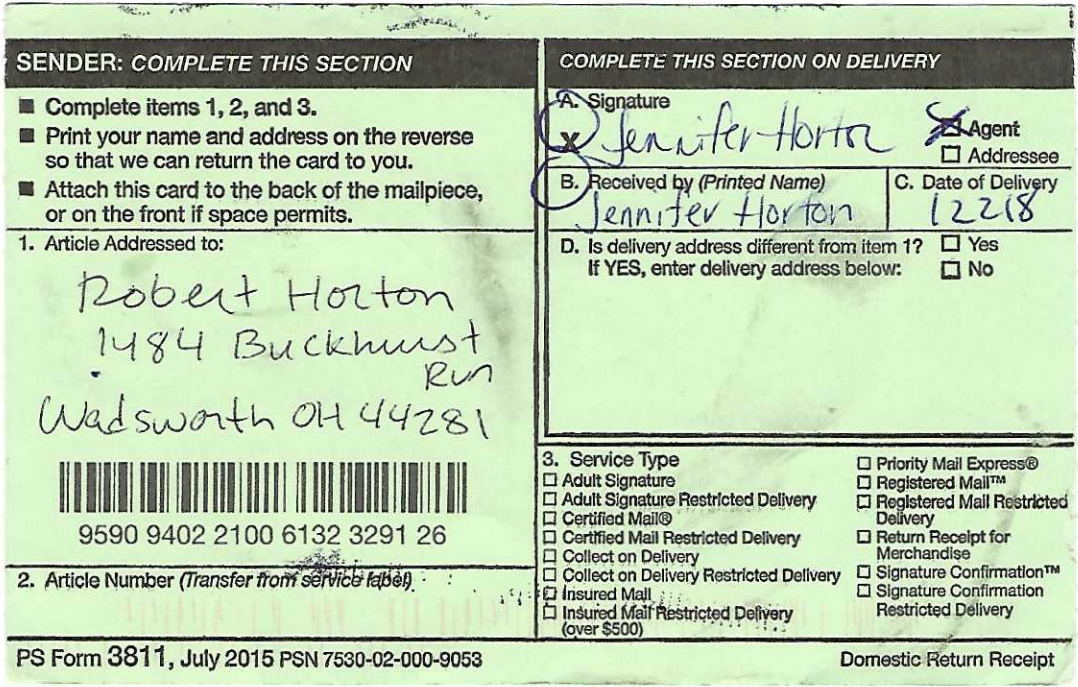 SENDER: COMPLETE THIS SECTION
■ Complete items 1, 2, and 3.
■ Print your name and address on the reverse
so that we can return the card to you.
■ Attach this card to the back of the mailpiece,
or on the front if space permits.
1. Article Addressed to:
Robert Horton
1484 Buckhurst
Run
Wadsworth OH 44281
9590 9402 2100 6132 3291 26
2. Article Number (Transfer from service label)
COMPLETE THIS SECTION ON DELIVERY
A. Signature
X Jennifer Horton
☒ Agent
☐ Addressee
B. Received by (Printed Name)
Jennifer Horton
C. Date of Delivery
12218
D. Is delivery address different from item 1? ☐ Yes
If YES, enter delivery address below: ☐ No
3. Service Type
☐ Adult Signature
☐ Adult Signature Restricted Delivery
☐ Certified Mail®
☐ Certified Mail Restricted Delivery
☐ Collect on Delivery
☐ Collect on Delivery Restricted Delivery
☐ Insured Mail
☐ Insured Mail Restricted Delivery
(over $500)
☐ Priority Mail Express®
☐ Registered Mail™
☐ Registered Mail Restricted
Delivery
☐ Return Receipt for
Merchandise
☐ Signature Confirmation™
☐ Signature Confirmation
Restricted Delivery
PS Form 3811, July 2015 PSN 7530-02-000-9053
Domestic Return Receipt